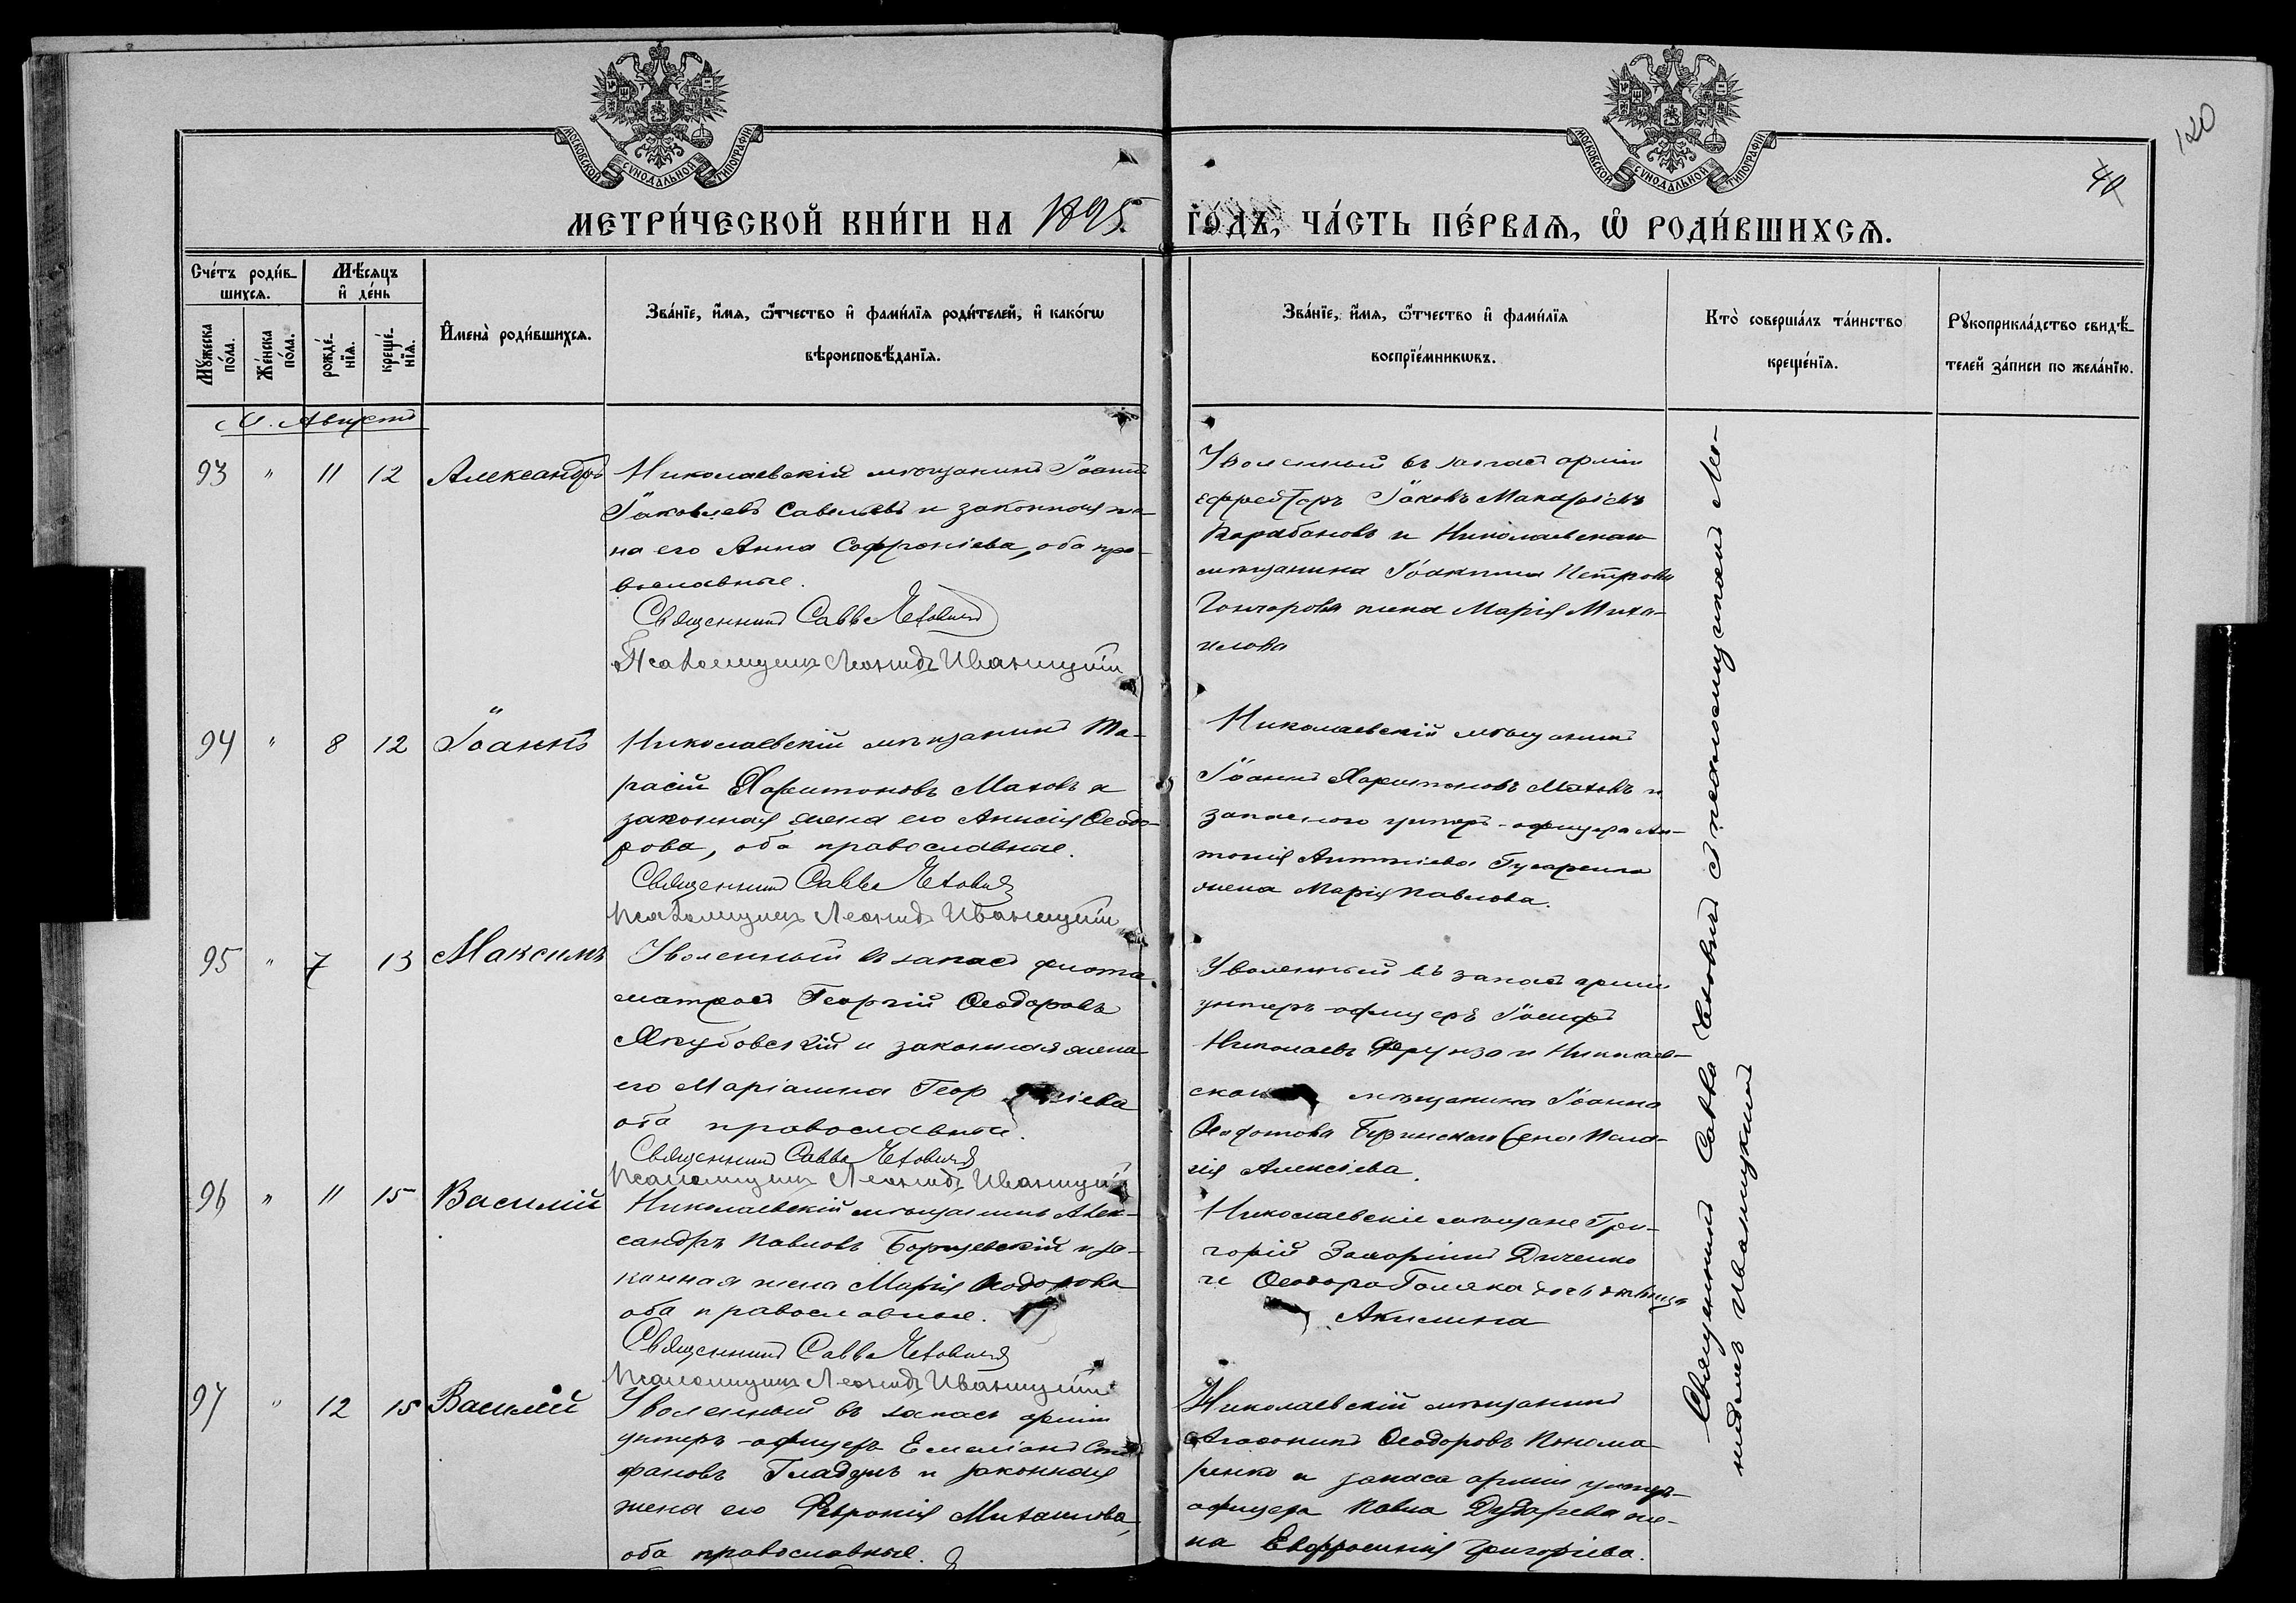 120
40
МОСКОВСКОЙ СѴНОДАЛЬНОЙ ТИПОГРАФІИ
МОСКОВСКОЙ СѴНОДАЛЬНОЙ ТИПОГРАФІИ
МЕТРИ́ЧЕСКОЙ КНИ́ГИ НА 1895
ГО́ДЪ, ЧА́СТЬ ПЕ́РВАѦ, Ѡ҆ РОДИ́ВШИХСѦ.
Сче́тъ роди́в-
шихсѧ.
Мꙋ́жеска по́ла.
Же́нска по́ла.
Мѣ́сѧцъ
и҆ де́нь
рожде́-
нїѧ.
креще́-
нїѧ.
И҆мена̀ роди́вшихсѧ.
Зва́нїе, и҆́мѧ, ѻ҆́тчество и҆ фами́лїѧ роди́телей, и҆ како́гѡ
вѣроисповѣ́данїѧ.
Зва́нїе, и҆́мѧ, ѻ҆́тчество и҆ фами́лїѧ
воспрїе́мникѡвъ.
Кто̀ соверша́лъ та́инство
креще́нїѧ.
Рꙋкоприкла́дство свидѣ́-
телей за́писи по жела́нїю.
М. Августъ
93 " 11 12 Александръ
Николаевскій мѣщанинъ Іоаннъ
Іаковлевъ Савельевъ и законная же-
на его Анна Софроніева, оба пра-
вославные.
Священникъ Савва Чехович
Псаломщикъ Леонидъ Иваницкій
Уволенный въ запасъ арміи
ефрейторъ Іаковъ Макаріевъ
Карабановъ и Николаевскаго
мѣщанина Іоакима Петрова
Гончарова жена Марія Миха-
илова
94 " 8 12 Іоаннъ
Николаевскій мѣщанинъ Та-
расій Харитоновъ Маховъ и
законная жена его Анисія Ѳеодо-
рова, оба православные.
Священникъ Савва Чехович
Псаломщикъ Леонидъ Иваницкій
Николаевскій мѣщанинъ
Іоаннъ Харитоновъ Маховъ и
запасного унтеръ-офицера Ан-
тонія Антоніева Гусаренко
жена Марія Павлова.
95 " 7 13 Максимъ
Уволенный въ запасъ флота
матросъ Георгій Ѳеодоровъ
Якубовскій и законная жена
его Маріанна Георгіева
оба православные.
Священникъ Савва Чехович
Псаломщикъ Леонидъ Иваницкій
Уволенный въ запасъ арміи
унтеръ-офицеръ Іосифъ
Николаевъ Фрунза и Николаев-
скаго мѣщанина Іоанна
жена Пела-
гія Алексіева.
96 " 11 15 Василій
Николаевскій мѣщанинъ Алек-
сандръ Павловъ Борщевскій и за-
конная жена Марія Ѳеодорова
оба православные.
Священникъ Савва Чехович
Псаломщикъ Леонидъ Иваницкій
Николаевскіе мѣщане Гри-
горій Захаріинъ Дяченко
и Ѳеодора Голяка дочь дѣвица
Акилина
97 " 12 15 Василій
Уволенный въ запасъ арміи
унтеръ-офицеръ Емеліанъ Сте-
фановъ Гладунъ и законная
жена его Февронія Михаилова,
оба православные.
Николаевскій мѣщанинъ
Агаѳоникъ Ѳеодоровъ Понома-
ренко и запаса арміи унтеръ-
офицера Павла Дегтярева же-
на Евфросинія Григоріева.
Священникъ Савва Чехович съ псаломщикомъ Ле-
онидомъ Иваницкимъ